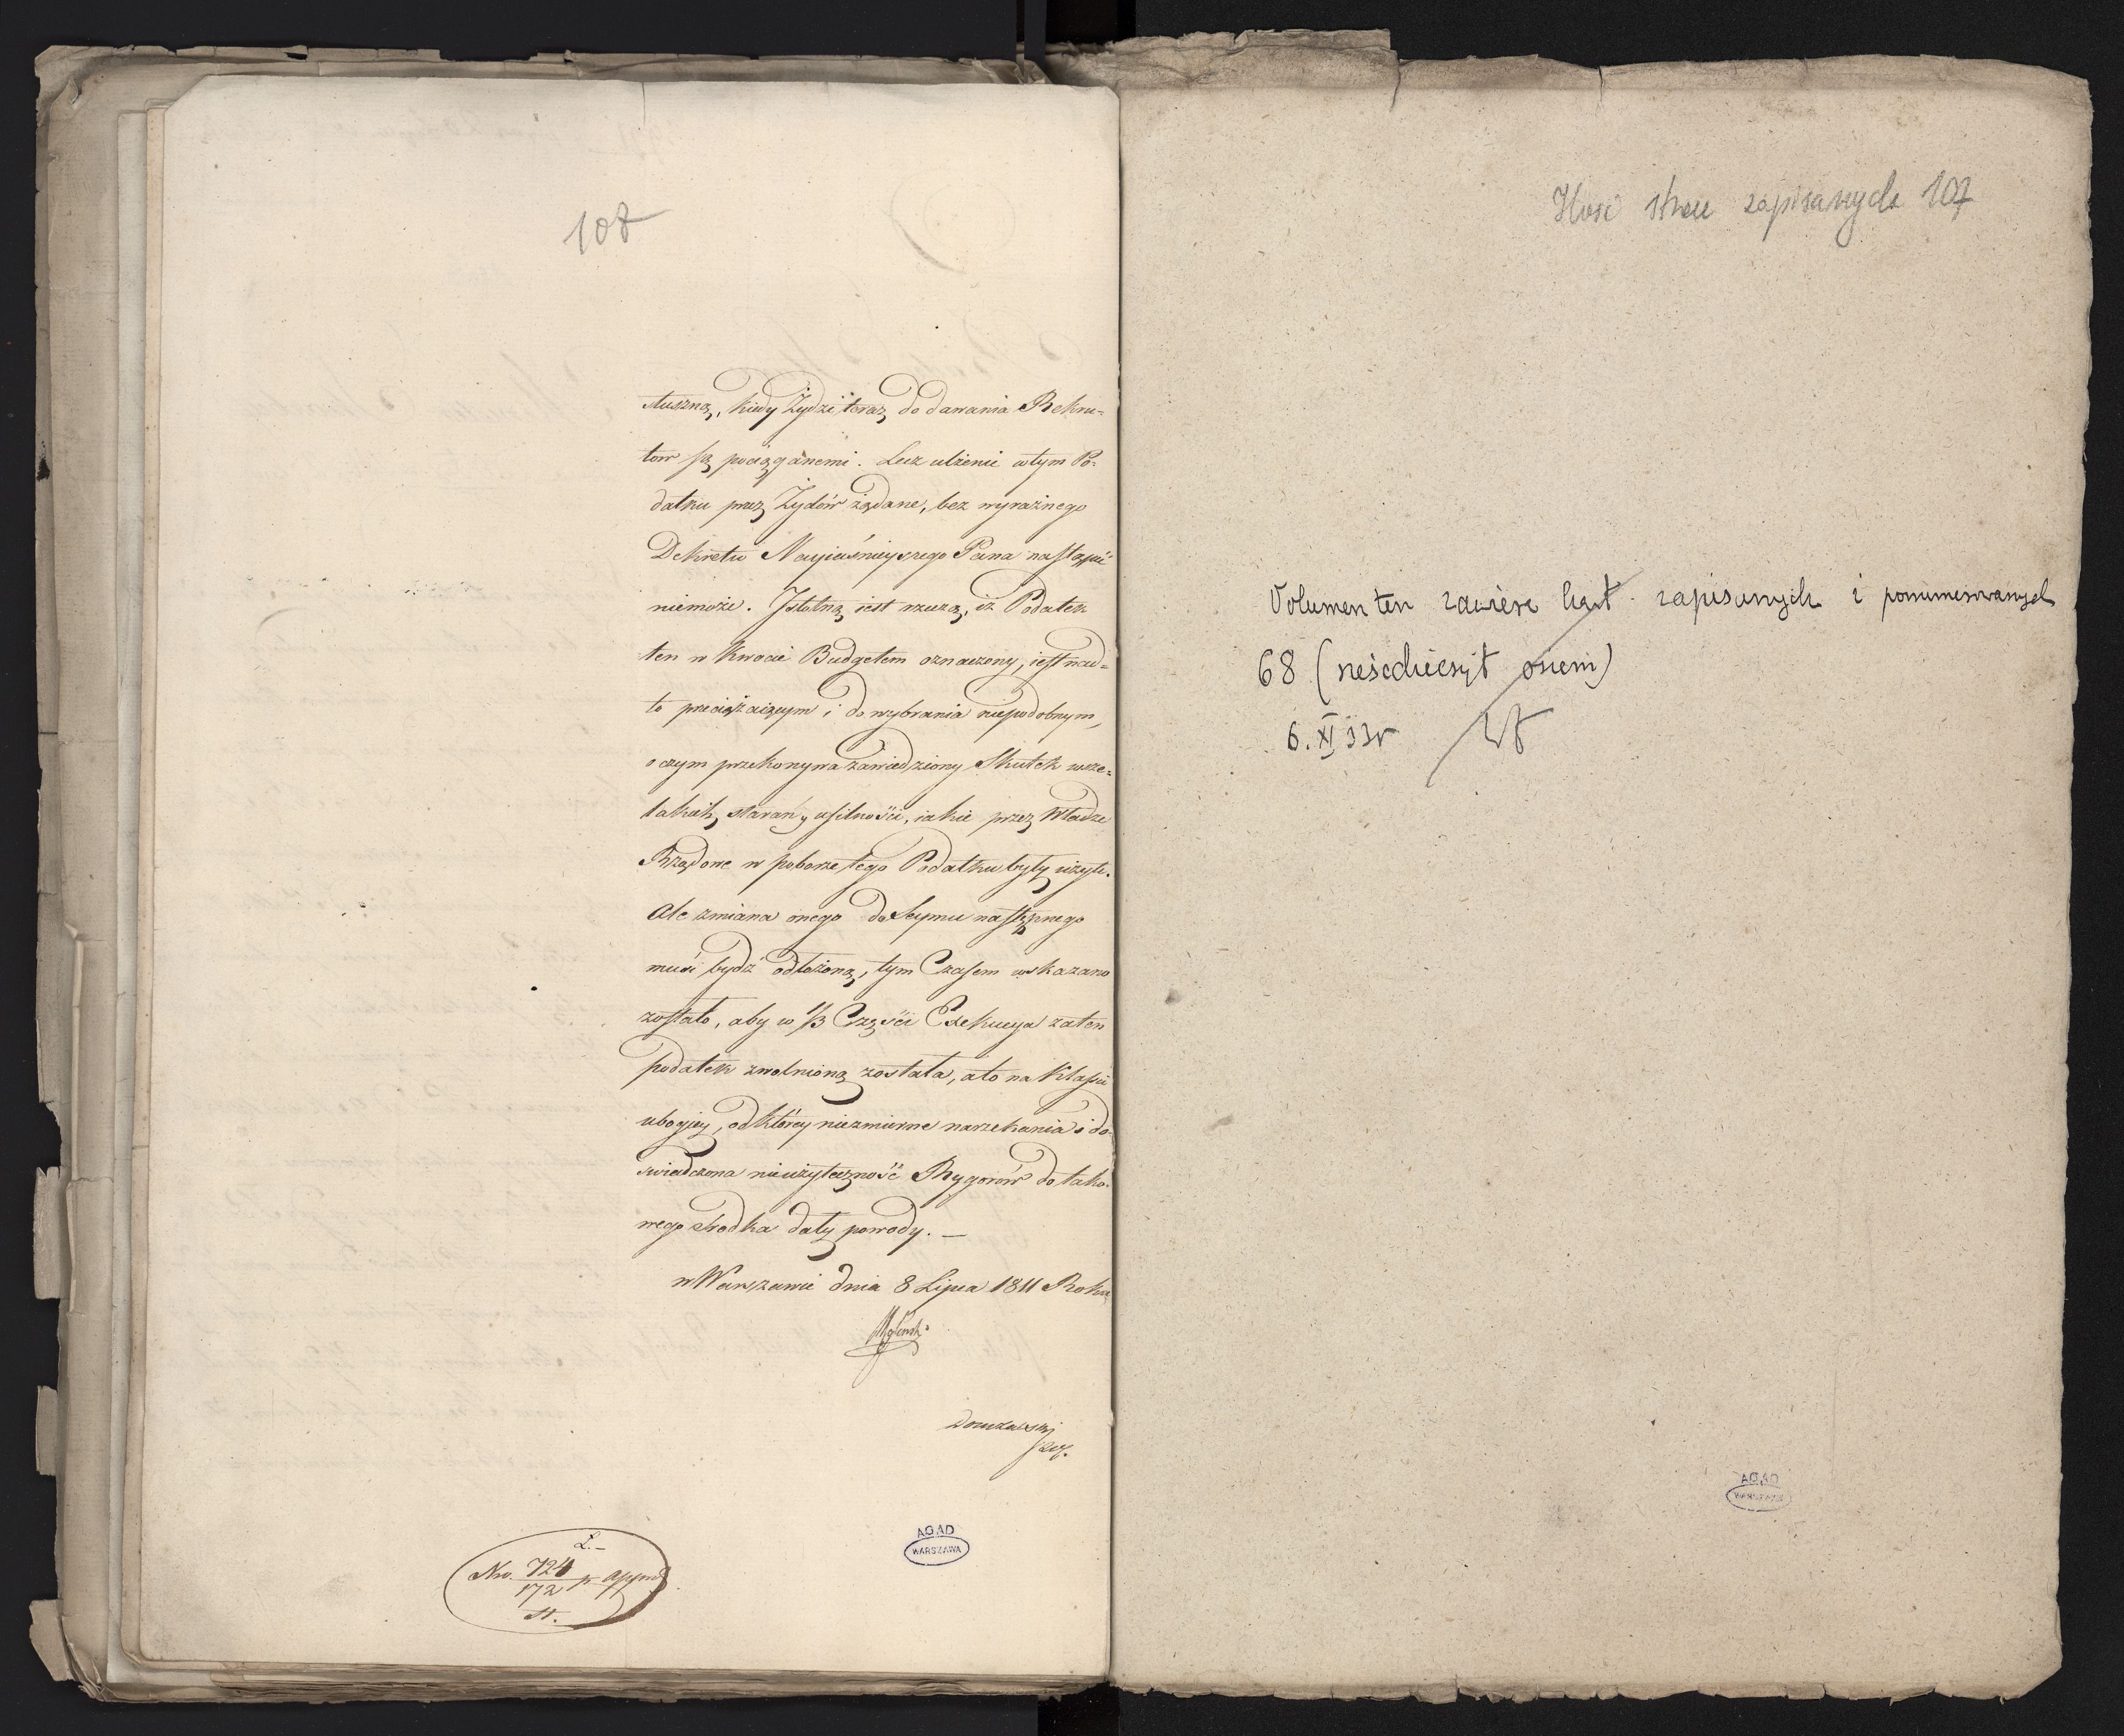 107
słuszną, kiedy Żydzi teraz do dawania Rekru-
tow są pociągánemi. Lecz ulżenie w tym Po-
datku przez Żydów żądane, bez wyraźnego
Dekretu Nayiaśnieyszego Pana nastąpić
niemoże. Istotną iest rzeczą, iż Podatek
ten w kwocie Budgetem oznaczony, iest nad-
to przeciążaiącym i do wybrania niepodobnym,
o czym przekonywa zawiedziony Skutek wsze-
lakich starań y usilności, iakie przez Władze
Rządowe w poborze tego Podatku były użyte.
Ale zmiana onego do Seymu następnego
musi bydź odłożoną, tym Czasem wskazano
zostało, aby w 1/3 Części Exekucya za ten
podatek zwolnioną została, a to na Klassie
ubogiey, od którey niezmierne narzekania i do-
swiadczona nieużyteczność Rygorów do tako-
wego srodka dały powody. —
w Warszawie dnia 8 Lipca 1811 Roku
L.-
Nro. 724/172 p.
St.
AGAD
WARSZAWA
Ilość stron zapisanych 107
Volumen ten zawiera kart zapisanych i ponumerowanych
68 (sześćdziesiąt osiem)
6. XI 33r
AGAD
WARSZAWA